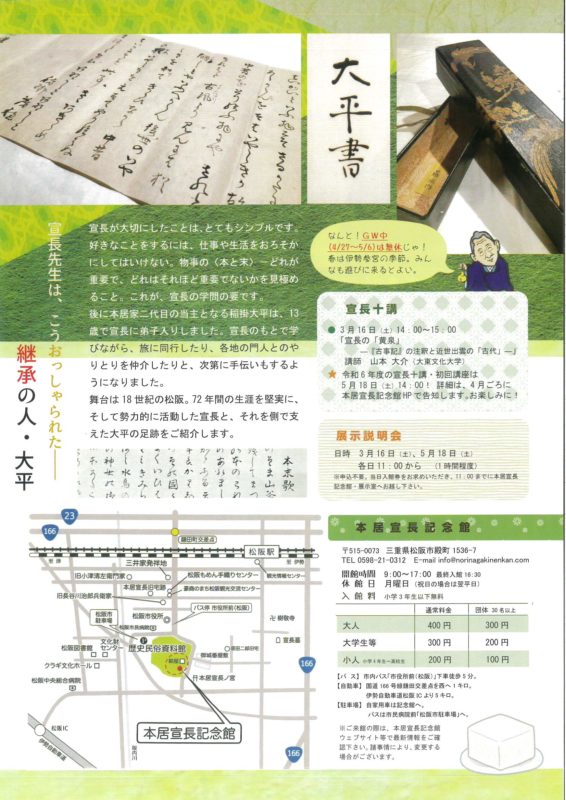 大平書
宣長先生は、こうおっしゃられた――
継承の人・大平
宣長が大切にしたことは、とてもシンプルです。
好きなことをするには、仕事や生活をおろそか
にしてはいけない。物事の〈本と末〉―どれが
重要で、どれはそれほど重要でないかを見極め
ること。これが、宣長の学問の要です。
後に本居家二代目の当主となる稲掛大平は、13
歳で宣長に弟子入りしました。宣長のもとで学
びながら、旅に同行したり、各地の門人とのや
りとりを仲介したりと、次第に手伝いもするよ
うになりました。
舞台は18世紀の松阪。72年間の生涯を堅実に、
そして努力的に活動した宣長と、それを側で支
えた大平の足跡をご紹介します。
なんと！GW中
(4/27〜5/6)は無休じゃ！
春は伊勢参宮の季節。みん
なも遊びに来るとよい。
宣長十講
3月16日（土）14：00〜15：00
「宣長の「黄泉」
―『古事記』の注釈と近世出雲の「古代」―」
講師 山本 大介（大東文化大学）
令和6年度の宣長十講・初回講座は
5月18日（土）14：00！ 詳細は、4月ごろに
本居宣長記念館HPで告知します。お楽しみに！
展示説明会
日時 3月16日（土）、5月18日（土）
各日11：00から （1時間程度）
※申込不要。当日入館券をお求めいただき、11：00までに本居宣長
記念館・展示室へお越し下さい。
本居宣長記念館
〒515-0073 三重県松阪市殿町1536-7
TEL 0598-21-0312 E-mail info@norinagakinenkan.com
開館時間 9:00〜17:00 最終入館16:30
休館日 月曜日（祝日の場合は翌平日）
入館料 小学3年生以下無料
通常料金 団体 30名以上
大人 400円 300円
大学生等 300円 200円
小人 小学4年生〜高校生 200円 100円
【バス】市内バス「市役所前（松阪）」下車徒歩5分。
【自動車】国道166号線鎌田交差点を西へ1キロ。
伊勢自動車道松阪ICより5キロ。
【駐車場】自家用車は記念館へ。
バスは市民病院前「松阪市駐車場」へ。
※ご来館の際は、本居宣長記念館
ウェブサイト等で最新情報をご確
認下さい。諸事情により、変更する
場合がございます。
23
166
鎌田町交差点
松阪駅
至 津
至 伊勢
三井家発祥地
旧小津清左衛門家
松阪もめん手織りセンター
観光情報センター
本居宣長旧宅跡
豪商のまち松阪観光交流センター
旧長谷川治郎兵衛家
松阪市
駐車場
松阪市役所
バス停 市役所前(松阪)
松阪市民病院
卍 樹敬寺
歴史民俗資料館
宣長墓
松阪図書館
文化財
センター
御城番屋敷
クラギ文化ホール
松阪中央総合病院
本居宣長ノ宮
166
本居宣長記念館
松阪IC
伊勢自動車道
阪内川
166